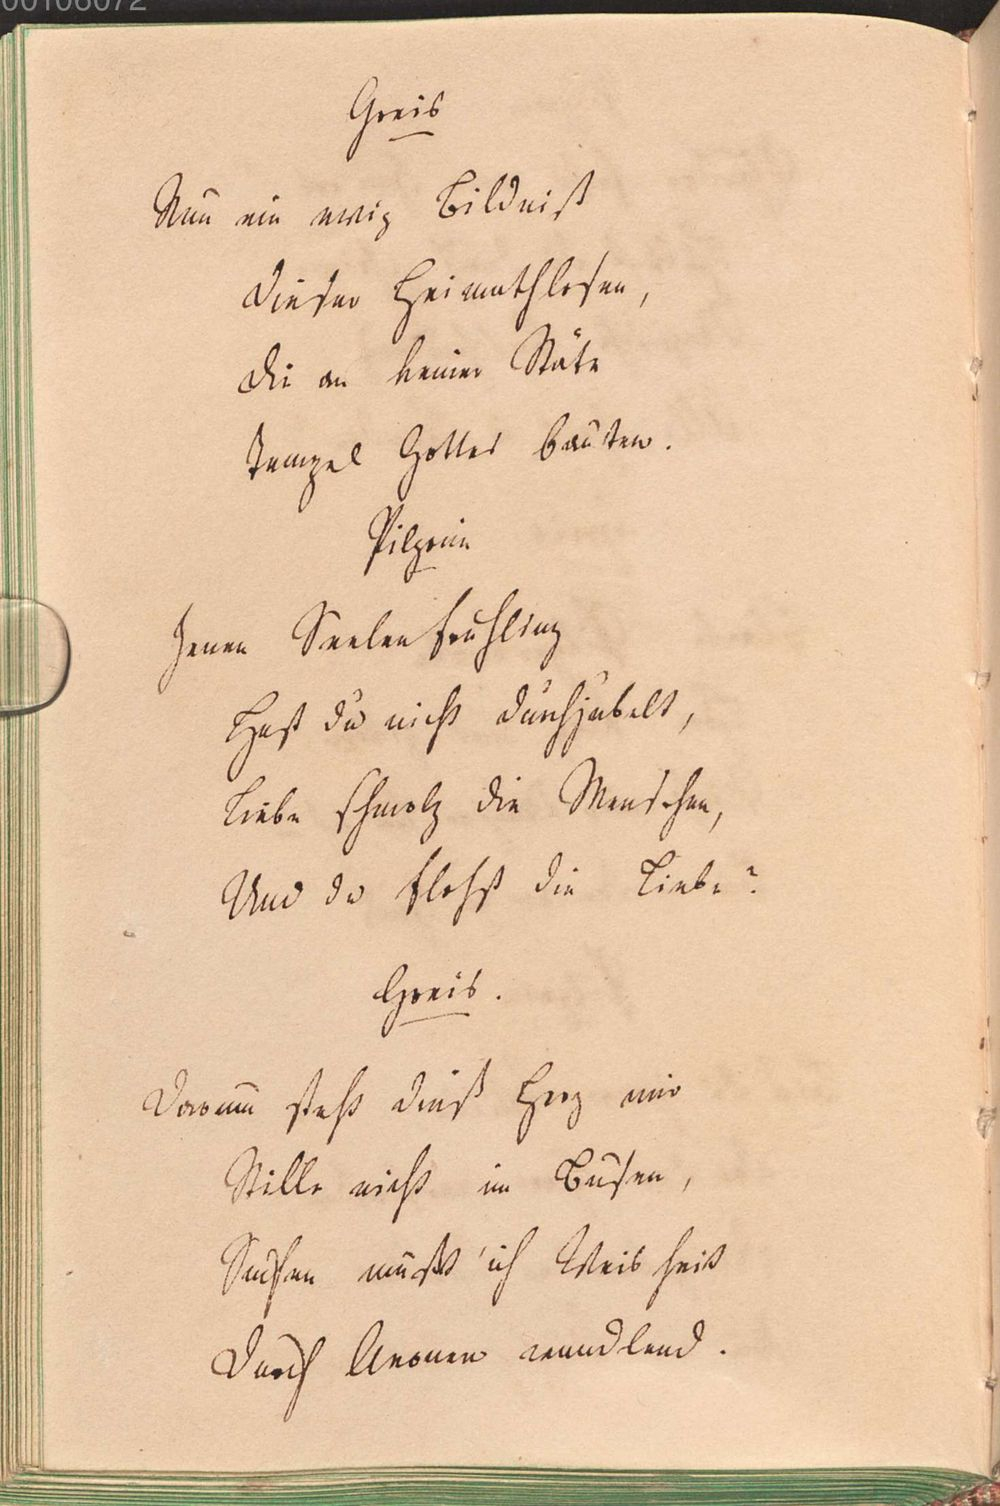 00106072
Greis
Nun ein ewig Bildniß
Dieser Heimathlosen,
Die an keiner Stäte
Tempel Gottes bauten.
Pilgrim
Jenen Seelenfruhling
Hast du nicht durchjubelt,
Liebe schmolz die Menschen,
Und du flohst die Liebe?
Greis.
Darum steht dieß Herz mir
Stille nicht im Busen,
Suchen mußt' ich Weisheit
Durch Aeonen wandlend.